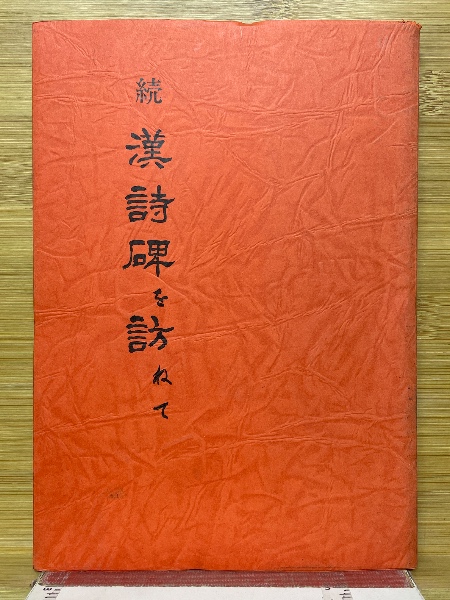 続 漢詩碑を訪ねて